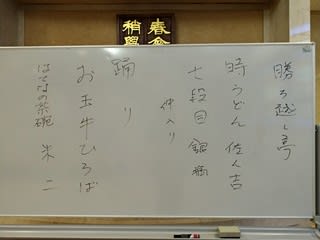 勝ち越し亭
時うどん 佐ん吉
七段目 銀瓶
仲入り
踊り
お玉牛 ひろば
はてなの茶碗 米二